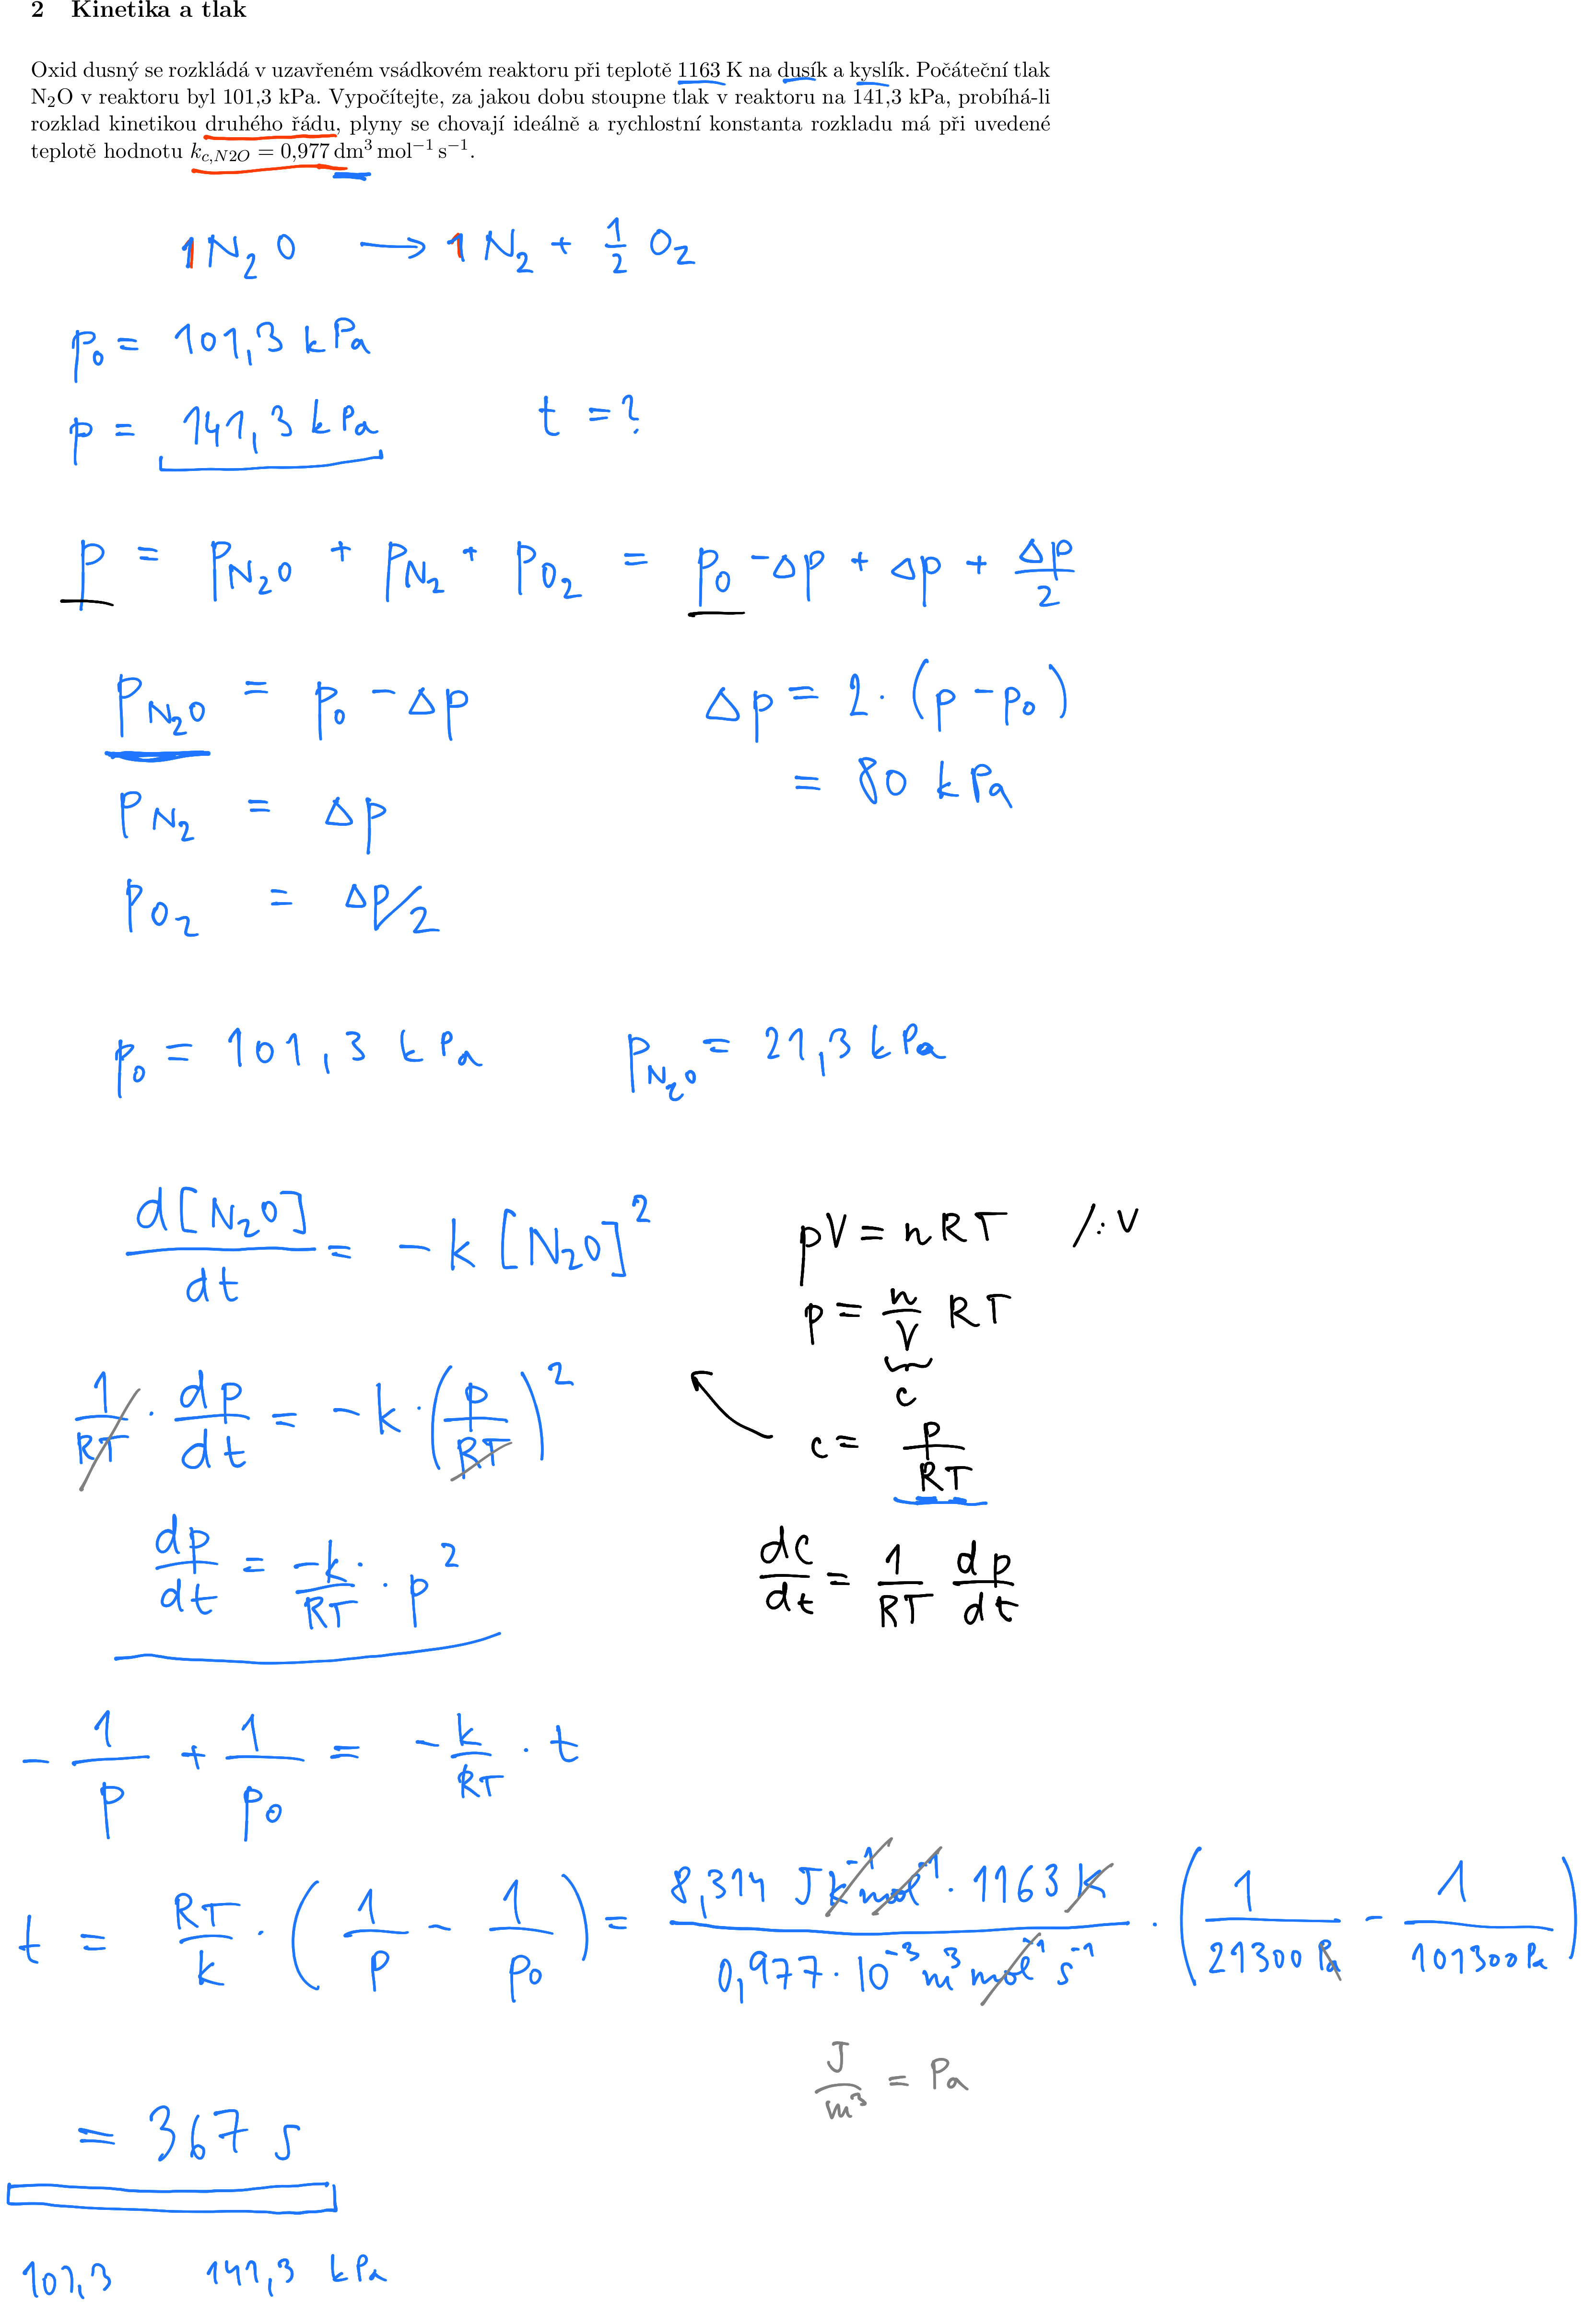 2 Kinetika a tlak
Oxid dusný se rozkládá v uzavřeném vsádkovém reaktoru při teplotě 1163 K na dusík a kyslík. Počáteční tlak
N₂O v reaktoru byl 101,3 kPa. Vypočítejte, za jakou dobu stoupne tlak v reaktoru na 141,3 kPa, probíhá-li
rozklad kinetikou druhého řádu, plyny se chovají ideálně a rychlostní konstanta rozkladu má při uvedené
teplotě hodnotu k_{c,N2O} = 0,977 dm³ mol⁻¹ s⁻¹.
1 N₂O → 1 N₂ + 1/2 O₂
p₀ = 101,3 kPa
p = 141,3 kPa t = ?
p = p_{N₂O} + p_{N₂} + p_{O₂} = p₀ - Δp + Δp + Δp/2
p_{N₂O} = p₀ - Δp Δp = 2 · (p - p₀)
= 80 kPa
p_{N₂} = Δp
p_{O₂} = Δp/2
p₀ = 101,3 kPa p_{N₂O} = 21,3 kPa
d[N₂O]/dt = - k [N₂O]²
pV = nRT /:V
p = n/V RT
c
1/RT · dp/dt = - k · (p/RT)²
c = p/RT
dp/dt = -k/RT · p²
dc/dt = 1/RT dp/dt
- 1/p + 1/p₀ = - k/RT · t
t = RT/k · (1/p - 1/p₀) = 8,314 J K⁻¹ mol⁻¹ · 1163 K / 0,977 · 10⁻³ m³ mol⁻¹ s⁻¹ · (1/21300 Pa - 1/101300 Pa)
J/m³ = Pa
= 367 s
101,3 141,3 kPa